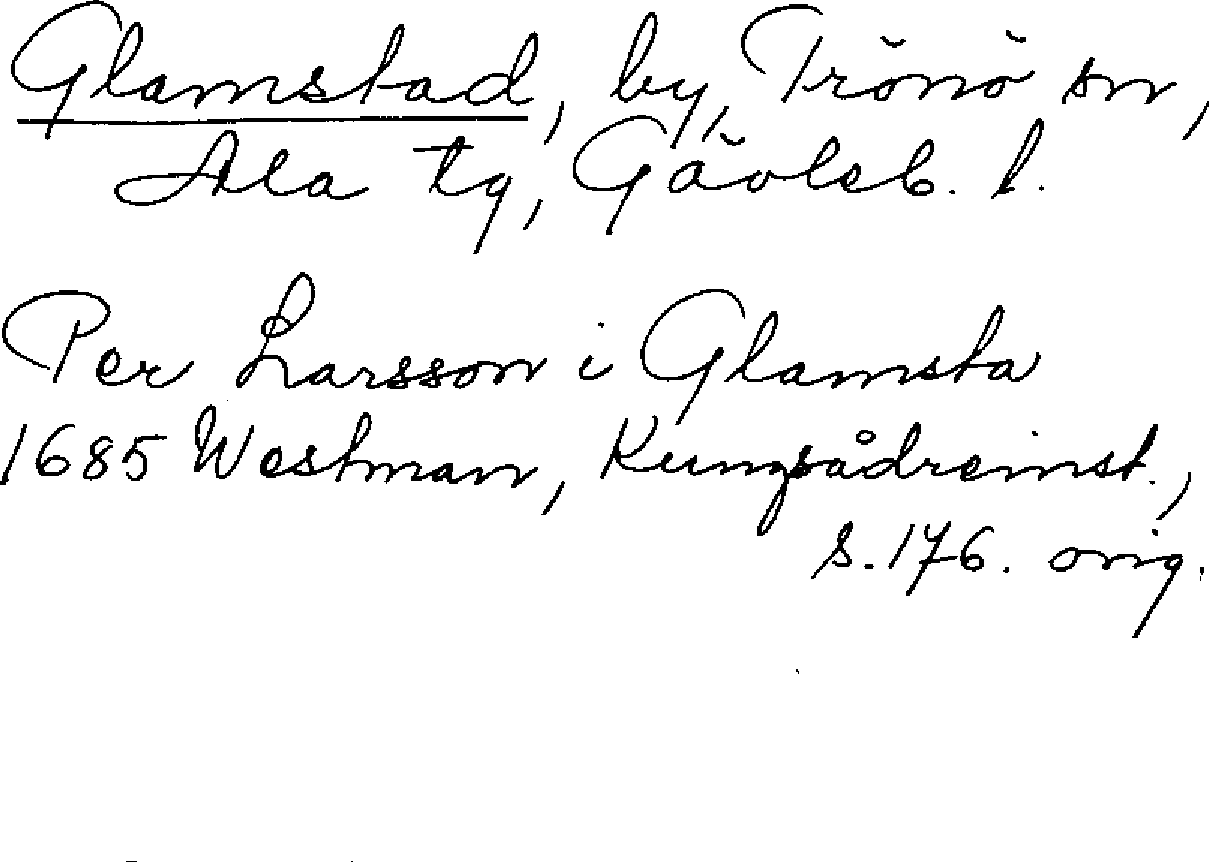 Glamstad, by, Trönö sn,
Ala tg, Gävleb. l.
Per Larsson i Glamsta
1685 Westman, Kungsådreinst.,
s. 176. orig.